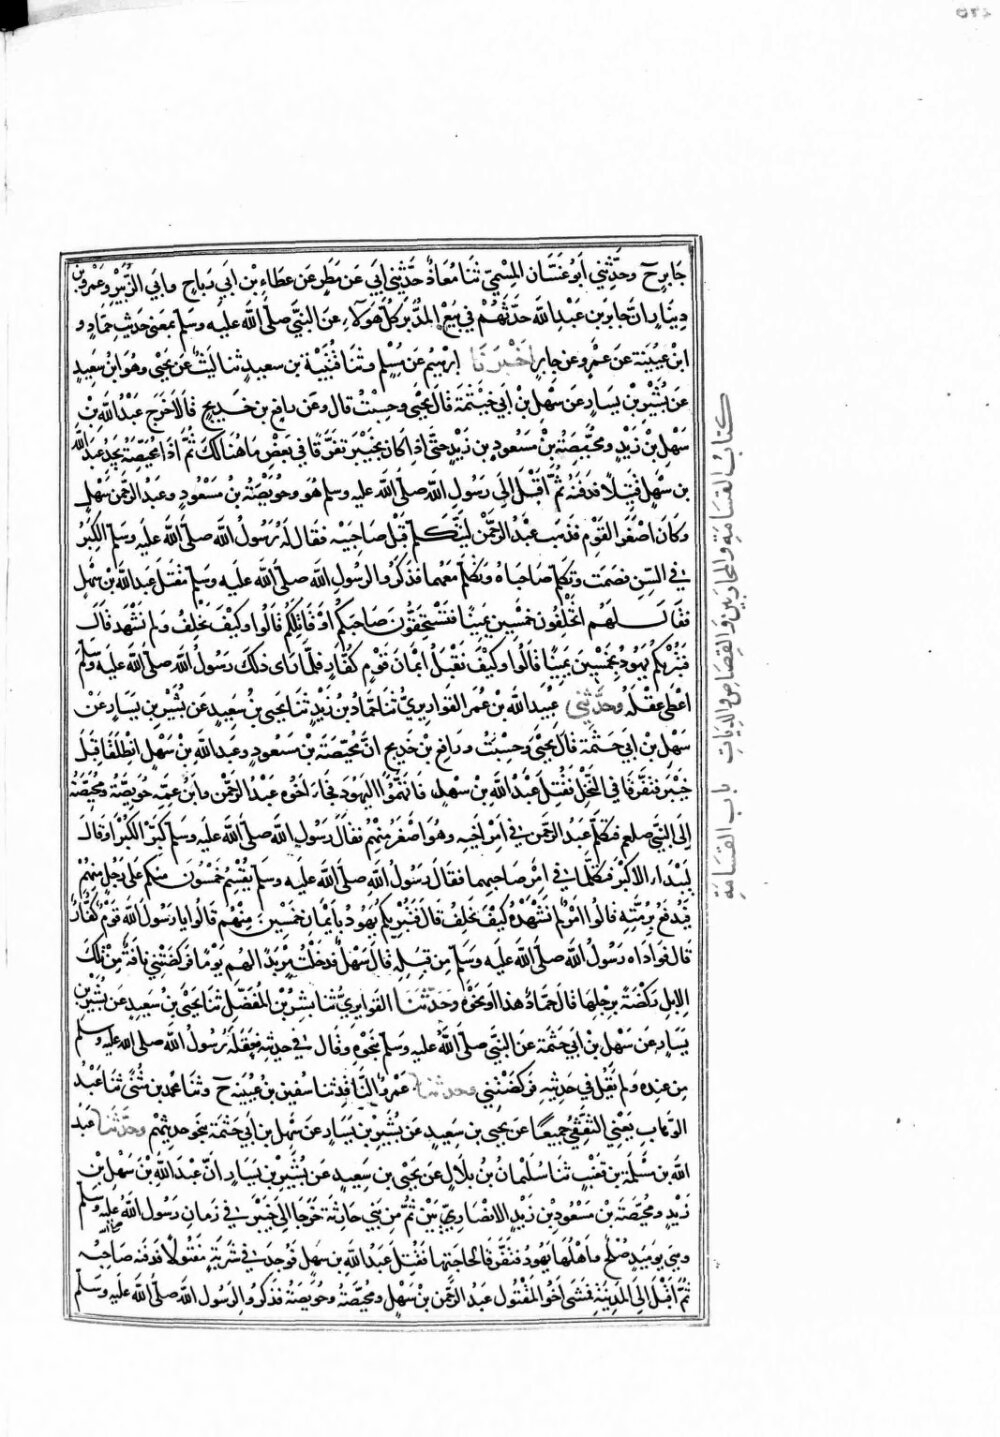 جابر ح وحدثني أبو غسان المسمعي ثنا معاذ حدثني أبي عن مطر عن عطاء بن أبي رباح وأبي الزبير وعمرو بن
دينار ان جابر بن عبد الله حدثهم في بيع المدبر كل هولاء عن النبي صلى الله عليه وسلم بمعنى حديث حماد و
ابن عيينة عن عمرو عن جابر اخبرنا ابرهيم عن مسلم وثنا قتيبة بن سعيد ثنا ليث عن يحيى وهو ابن سعيد
عن بشير بن يسار عن سهل بن ابي خيثمة قال يحيى وحسبت قال وعن رافع بن خديج قالا خرج عبد الله بن
سهل بن زيد ومحيصة بن مسعود بن زيد حتى اذا كانا بخيبر تفرقا في بعض ما هنالك ثم اذا محيصة يجد عبد الله
بن سهل قتيلا فدفنه ثم أقبل إلى رسول الله صلى الله عليه وسلم هو وحويصة بن مسعود وعبد الرحمن سهل
وكان اصغر القوم فذهب عبد الرحمن ليتكلم قبل صاحبيه فقال له رسول الله صلى الله عليه وسلم الكبر
في السن فصمت وتكلم صاحباه وتكلم معهما فذكروا لرسول الله صلى الله عليه وسلم مقتل عبد الله بن سهل
فقال لهم اتحلفون خمسين يمينا فتستحقون صاحبكم او قاتلكم قالوا وكيف نحلف ولم نشهد قال
فتبرئكم يهود بخمسين يمينا قالوا وكيف نقبل ايمان قوم كفار فلما راى ذلك رسول الله صلى الله عليه وسلم
اعطى عقله وحدثني عبيد الله بن عمر القواريري ثنا حماد بن زيد ثنا يحيى بن سعيد عن بشير بن يسار عن
سهل بن ابي حثمة قال يحيى وحسبت ورافع بن خديج ان محيصة بن مسعود وعبد الله بن سهل انطلقا قبل
خيبر فتفرقا في النخل فقتل عبد الله بن سهل فاتهموا اليهود فجاء اخوه عبد الرحمن وابن عمه حويصة ومحيصة
إلى النبي صلعم فتكلم عبد الرحمن في امر اخيه وهو اصغر منهم فقال رسول الله صلى الله عليه وسلم كبر الكبر او قال
ليبداء الاكبر فتكلما في امر صاحبهما فقال رسول الله صلى الله عليه وسلم يقسم خمسون منكم على رجل منهم
فيدفع برمته قالوا امر لم نشهده كيف نحلف قال فتبريكم يهود بأيمان خمسين منهم قالوا يا رسول الله قوم كفار
قال فوداه رسول الله صلى الله عليه وسلم من قبله قال سهل فدخلت مربدا لهم يوما فركضتني ناقة من تلك
الابل ركضة برجلها قال حماد هذا او نحوه وحدثنا القواريري ثنا بشر بن المفضل ثنا يحيى بن سعيد عن بشير بن
يسار عن سهل بن ابي حثمة عن النبي صلى الله عليه وسلم نحوه وقال في حديثه فعقله رسول الله صلى الله عليه وسلم
من عنده ولم يقل في حديثه فركضتني وحدثنا عمرو الناقد ثنا سفين بن عيينة ح وثنا محمد بن مثنى ثنا عبد
الوهاب يعني الثقفي جميعا عن يحيى بن سعيد عن بشير بن يسار عن سهل بن ابي حثمة بنحو حديثهم وحدثنا عبد
الله بن مسلمة بن قعنب ثنا سليمان بن بلال عن يحيى بن سعيد عن بشير بن يسار ان عبد الله بن سهل بن
زيد ومحيصة بن مسعود بن زيد الانصاريين ثم من بني حارثة خرجا الى خيبر في زمان رسول الله صلى الله عليه وسلم
وهي يوميذ صلح واهلها يهود فتفرقا لحاجتهما فقتل عبد الله بن سهل فوجد في شربة مقتولا فدفنه صاحبه
ثم أقبل إلى المدينة فمشى اخو المقتول عبد الرحمن بن سهل ومحيصة وحويصة فذكروا لرسول الله صلى الله عليه وسلم
كتاب القسامة والمحاربين والقصاص والديات باب القسامة